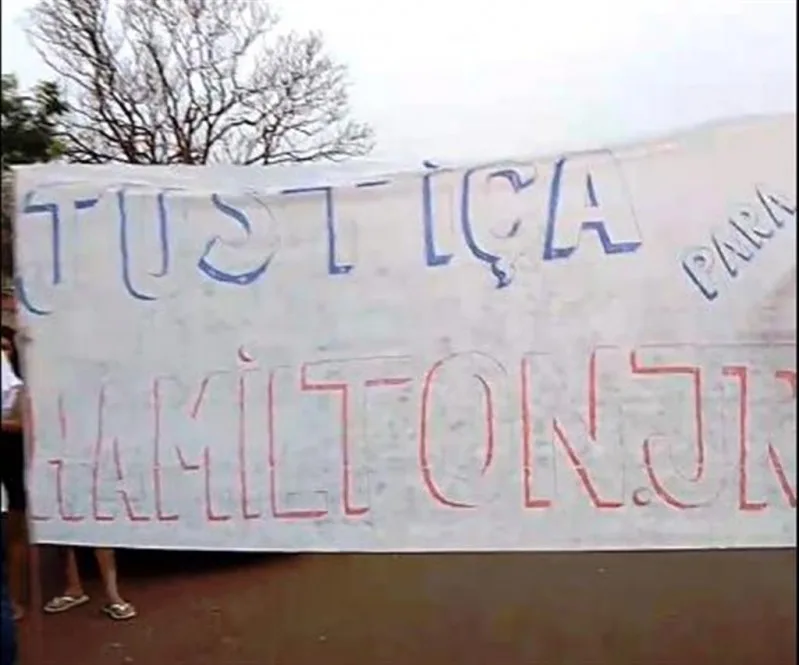 JUSTIÇA PARA
HAMILTON.JR